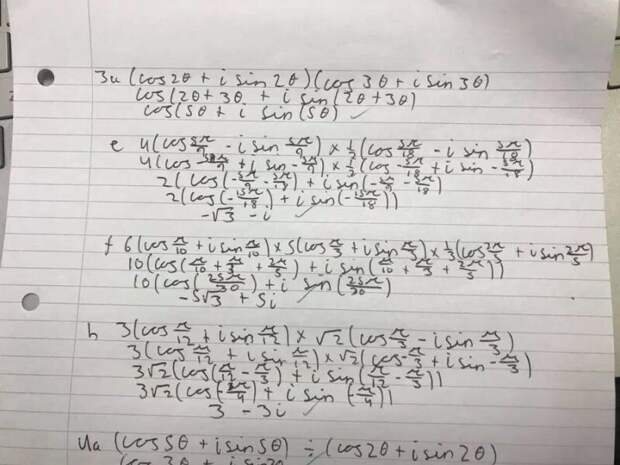 3a (cos2θ + i sin 2θ)(cos 3θ + i sin 3θ)
cos(2θ + 3θ + i sin (2θ + 3θ)
cos(5θ + i sin (5θ) ✓
e 4(cos 5π/9 - i sin 5π/9) × 1/2(cos 5π/18 - i sin 5π/18)
4(cos -5π/9 + i sin -5π/9) × 1/2 (cos -5π/18 + i sin -5π/18)
2(cos(-5π/9 - 5π/18) + i sin(-5π/9 - 5π/18)
2(cos(-15π/18) + i sin(-15π/18))
-√3 - i ✓
f 6(cos π/10 + i sin π/10) × 5(cos π/3 + i sin π/3) × 1/3(cos 2π/5 + i sin 2π/5)
10(cos(π/10 + π/3 + 2π/5) + i sin(π/10 + π/3 + 2π/5))
10(cos(25π/30) + i sin (25π/30)
-5√3 + 5i ✓
h 3(cos π/12 + i sin π/12) × √2(cos π/3 - i sin π/3)
3(cos π/12 + i sin π/12) × √2(cos -π/3 + i sin -π/3)
3√2(cos(π/12 - π/3) + i sin(π/12 - π/3))
3√2(cos(-π/4) + i sin (-π/4))
3 - 3i ✓
4a (cos 5θ + i sin 5θ) ÷ (cos 2θ + i sin 2θ)
(cos 3θ + i sin